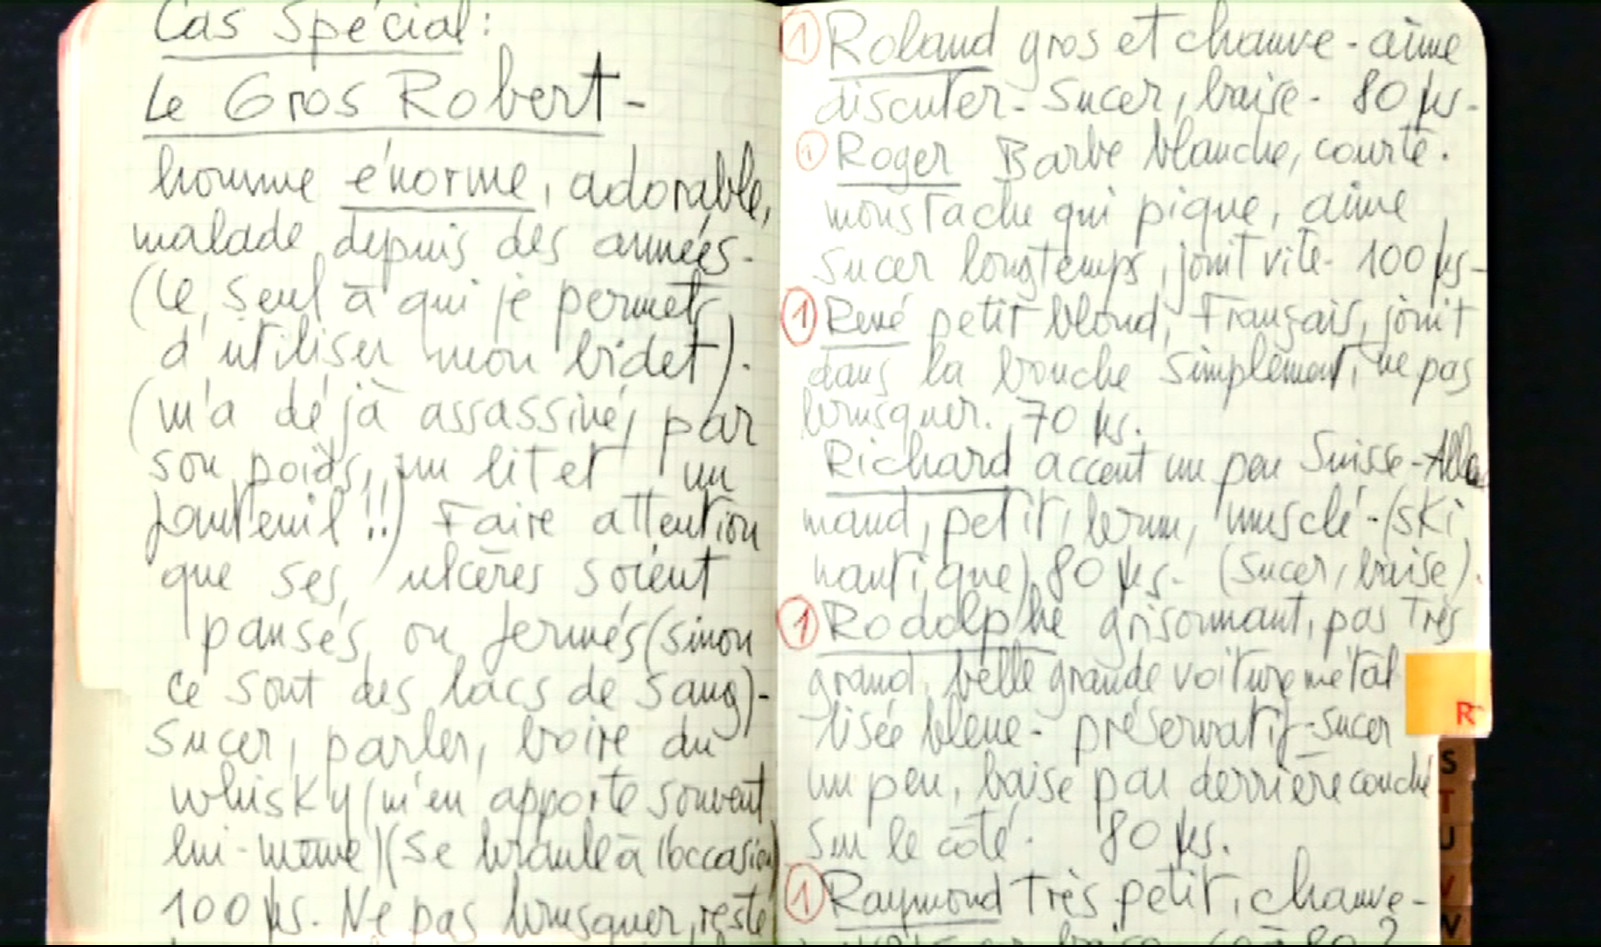 Cas Spécial:
Le Gros Robert-
homme énorme, adorable,
malade depuis des années-
(Le seul à qui je permets
d'utiliser mon bidet).
(m'a déjà assassiné, par
son poids, un lit et un
fauteuil!!) Faire attention
que ses ulcères soient
pansés ou fermés (sinon
ce sont des lacs de sang)-
Sucer, parler, boire du
whisky (m'en apporte souvent
lui-même) (se branle à l'occasion)
100 frs. Ne pas brusquer, reste
① Roland gros et chauve - aime
discuter - Sucer, baise - 80 frs-
① Roger Barbe blanche, courte.
moustache qui pique, aime
sucer longtemps, jouit vite- 100 frs-
① René petit blond, Français, jouit
dans la bouche simplement, ne pas
brusquer. 70 frs.
Richard accent un peu Suisse-Alle
mand, petit, brun, musclé-(ski
nautique) 80 frs- (sucer, baise).
① Rodolphe grisonnant, pas très
grand, belle grande voiture métal
lisée bleue- préservatif- sucer
un peu, baise par derrière couché
sur le côté. 80 frs.
① Raymond Très petit, chauve-
R
S
T
U
V
W